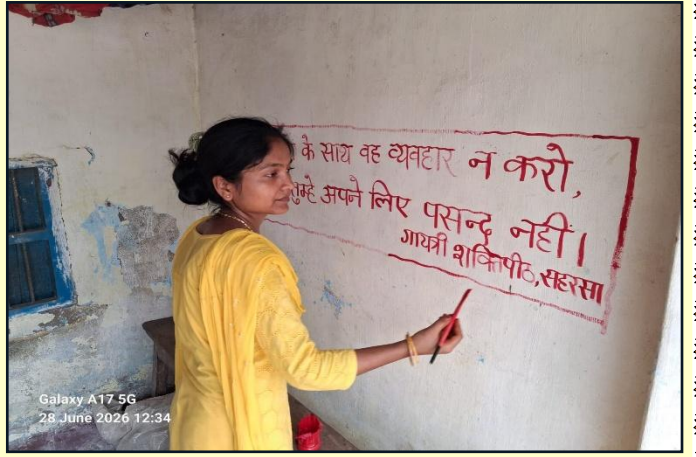 के साथ वह व्यवहार न करो,
तुम्हे अपने लिए पसन्द नहीं।
गायत्री शक्तिपीठ, सहरसा
Galaxy A17 5G
28 June 2026 12:34